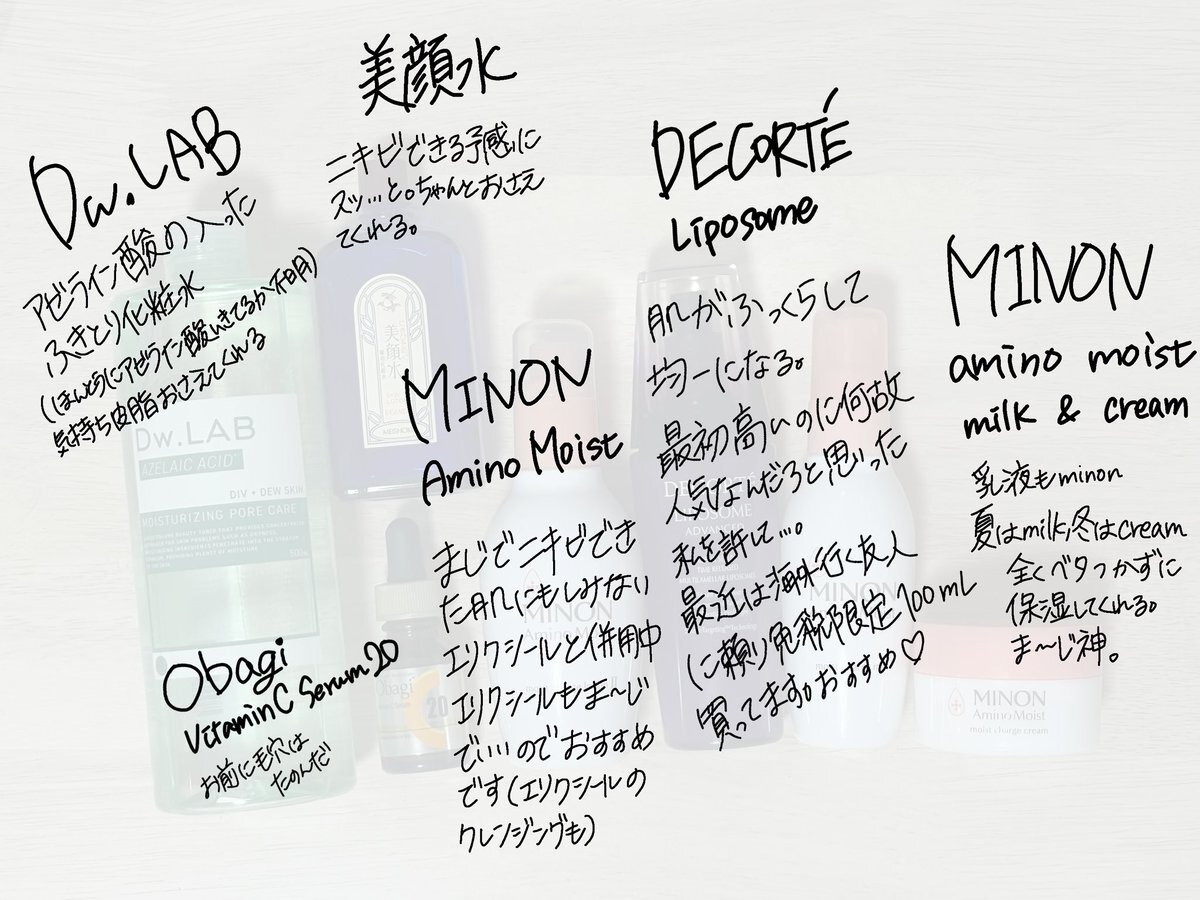 Dw.LAB
アゼライン酸の入った
ふきとり化粧水
(ほんとうにアゼライン酸いきてるか不明)
気持ち皮脂おさえてくれる
美顔水
ニキビできる予感に
スッ…と。ちゃんとおさえ
てくれる。
DECORTÉ
Liposome
肌がふっくらして
均一になる。
最初高いのに何故
人気なんだろと思った
私を許して…。
最近は海外行く友人
に頼り免税限定100mL
買ってますがおすすめ♡
MINON
amino moist
milk & cream
乳液もminon
夏はmilk,冬はcream
全くベタつかずに
保湿してくれる。
ま〜じ神。
MINON
Amino Moist
まじでニキビでき
た肌にもしみない
エリクシールと併用中
エリクシールもま〜じ
でいいのでおすすめ
です(エリクシールの
クレンジングも)
Obagi
VitaminC Serum20
お前に毛穴は
たのんだ
Dw.LAB
AZELAIC ACID
DIV + DEW SKIN
MOISTURIZING PORE CARE
500ml
美顔水
MEISHOKU
Obagi
20
MINON
Amino Moist
DECORTÉ
LIPOSOME
ADVANCED
MINON
MINON
Amino Moist
moist charge cream